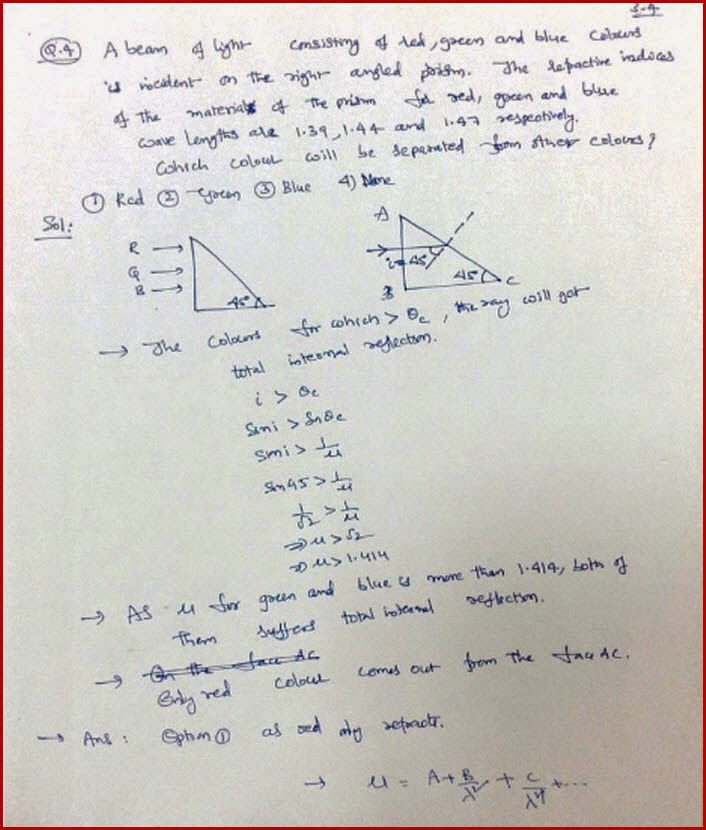 S-4
Q.4) A beam of light consisting of red, green and blue colours
is incident on the right angled prism. The refractive indices
of the material of the prism for red, green and blue
wave lengths are 1.39, 1.44 and 1.47 respectively.
Which colour will be separated from other colours?
① Red ② Green ③ Blue 4) None
Sol:
R →
G →
B →
45°
A
i=45°
45°
B
C
→ The colours for which > θc, the ray will get
total internal reflection.
i > θc
Sini > Sinθc
Sini > 1/μ
Sin45 > 1/μ
1/√2 > 1/μ
⇒ μ > √2
⇒ μ > 1.414
→ As μ for green and blue is more than 1.414, both of
them suffers total internal reflection.
→ On the face AC
Only red colour comes out from the face AC.
→ Ans: Option ① as red only refracts.
→ μ = A + B/λ² + C/λ⁴ + ...